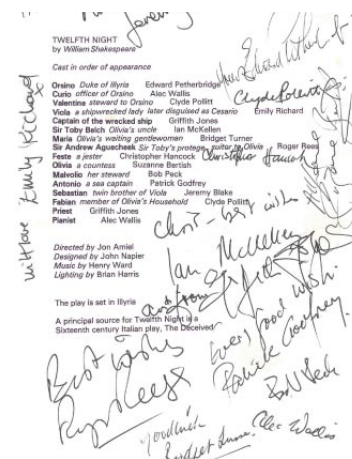 Jeremy
TWELFTH NIGHT
by William Shakespeare
Cast in order of appearance
Orsino Duke of Illyria Edward Petherbridge
Curio officer of Orsino Alec Wallis
Valentine steward to Orsino Clyde Pollitt
Viola a shipwrecked lady later disguised as Cesario Emily Richard
Captain of the wrecked ship Griffith Jones
Sir Toby Belch Olivia's uncle Ian McKellen
Maria Olivia's waiting gentlewomen Bridget Turner
Sir Andrew Aguecheek Sir Toby's protege, suitor to Olivia Roger Rees
Feste a jester Christopher Hancock Christopher Hancock
Olivia a countess Suzanne Bertish
Malvolio her steward Bob Peck
Antonio a sea captain Patrick Godfrey
Sebastian twin brother of Viola Jeremy Blake
Fabian member of Olivia's Household Clyde Pollitt
Priest Griffith Jones
Pianist Alec Wallis
Directed by Jon Amiel
Designed by John Napier
Music by Henry Ward
Lighting by Brian Harris
The play is set in Illyria
A principal source for Twelfth Night is a
Sixteenth century Italian play, The Deceived
with love Emily Richard
Edward Petherbridge
Clyde Pollitt
best wishes
Ian McKellen
and from
Every good wish.
Patrick Godfrey
Bob Peck
Best wishes
Roger Rees
good luck
Bridget Turner
Alec Wallis